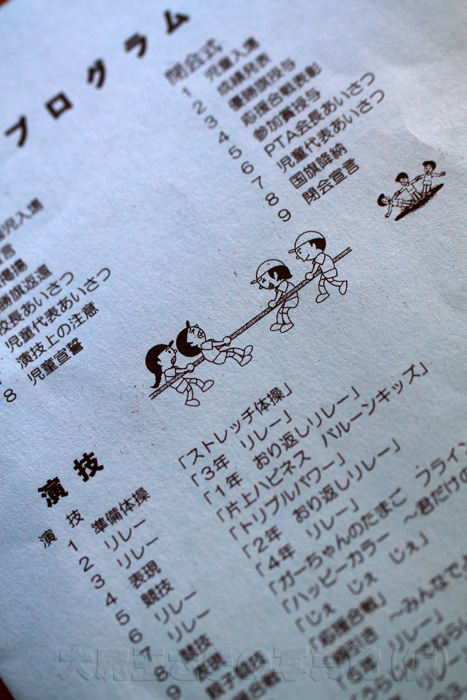 プログラム
閉会式
1 児童入場
2 成績発表
3 優勝旗授与
4 応援合戦表彰
5 参加賞授与
6 PTA会長あいさつ
7 児童代表あいさつ
8 国旗降納
9 閉会宣言
児入場
言
掲揚
勝旗返還
校長あいさつ
児童代表あいさつ
演技上の注意
8 児童宣誓
演技
演技
1 準備体操 「ストレッチ体操」
2 リレー 「3年 リレー」
3 リレー 「1年 おり返しリレー」
4 表現 「片上ハピネス バルーンキッズ」
5 競技 「トリプルパワー」
6 リレー 「2年 おり返しリレー」
7 リレー 「4年 リレー」
8 競技 「ガーちゃんのたまご フライン
9 表現 「ハッピーカラー ~君だけの
「じぇ じぇ じぇ」
「応援合戦」
~みんなで
リレー」